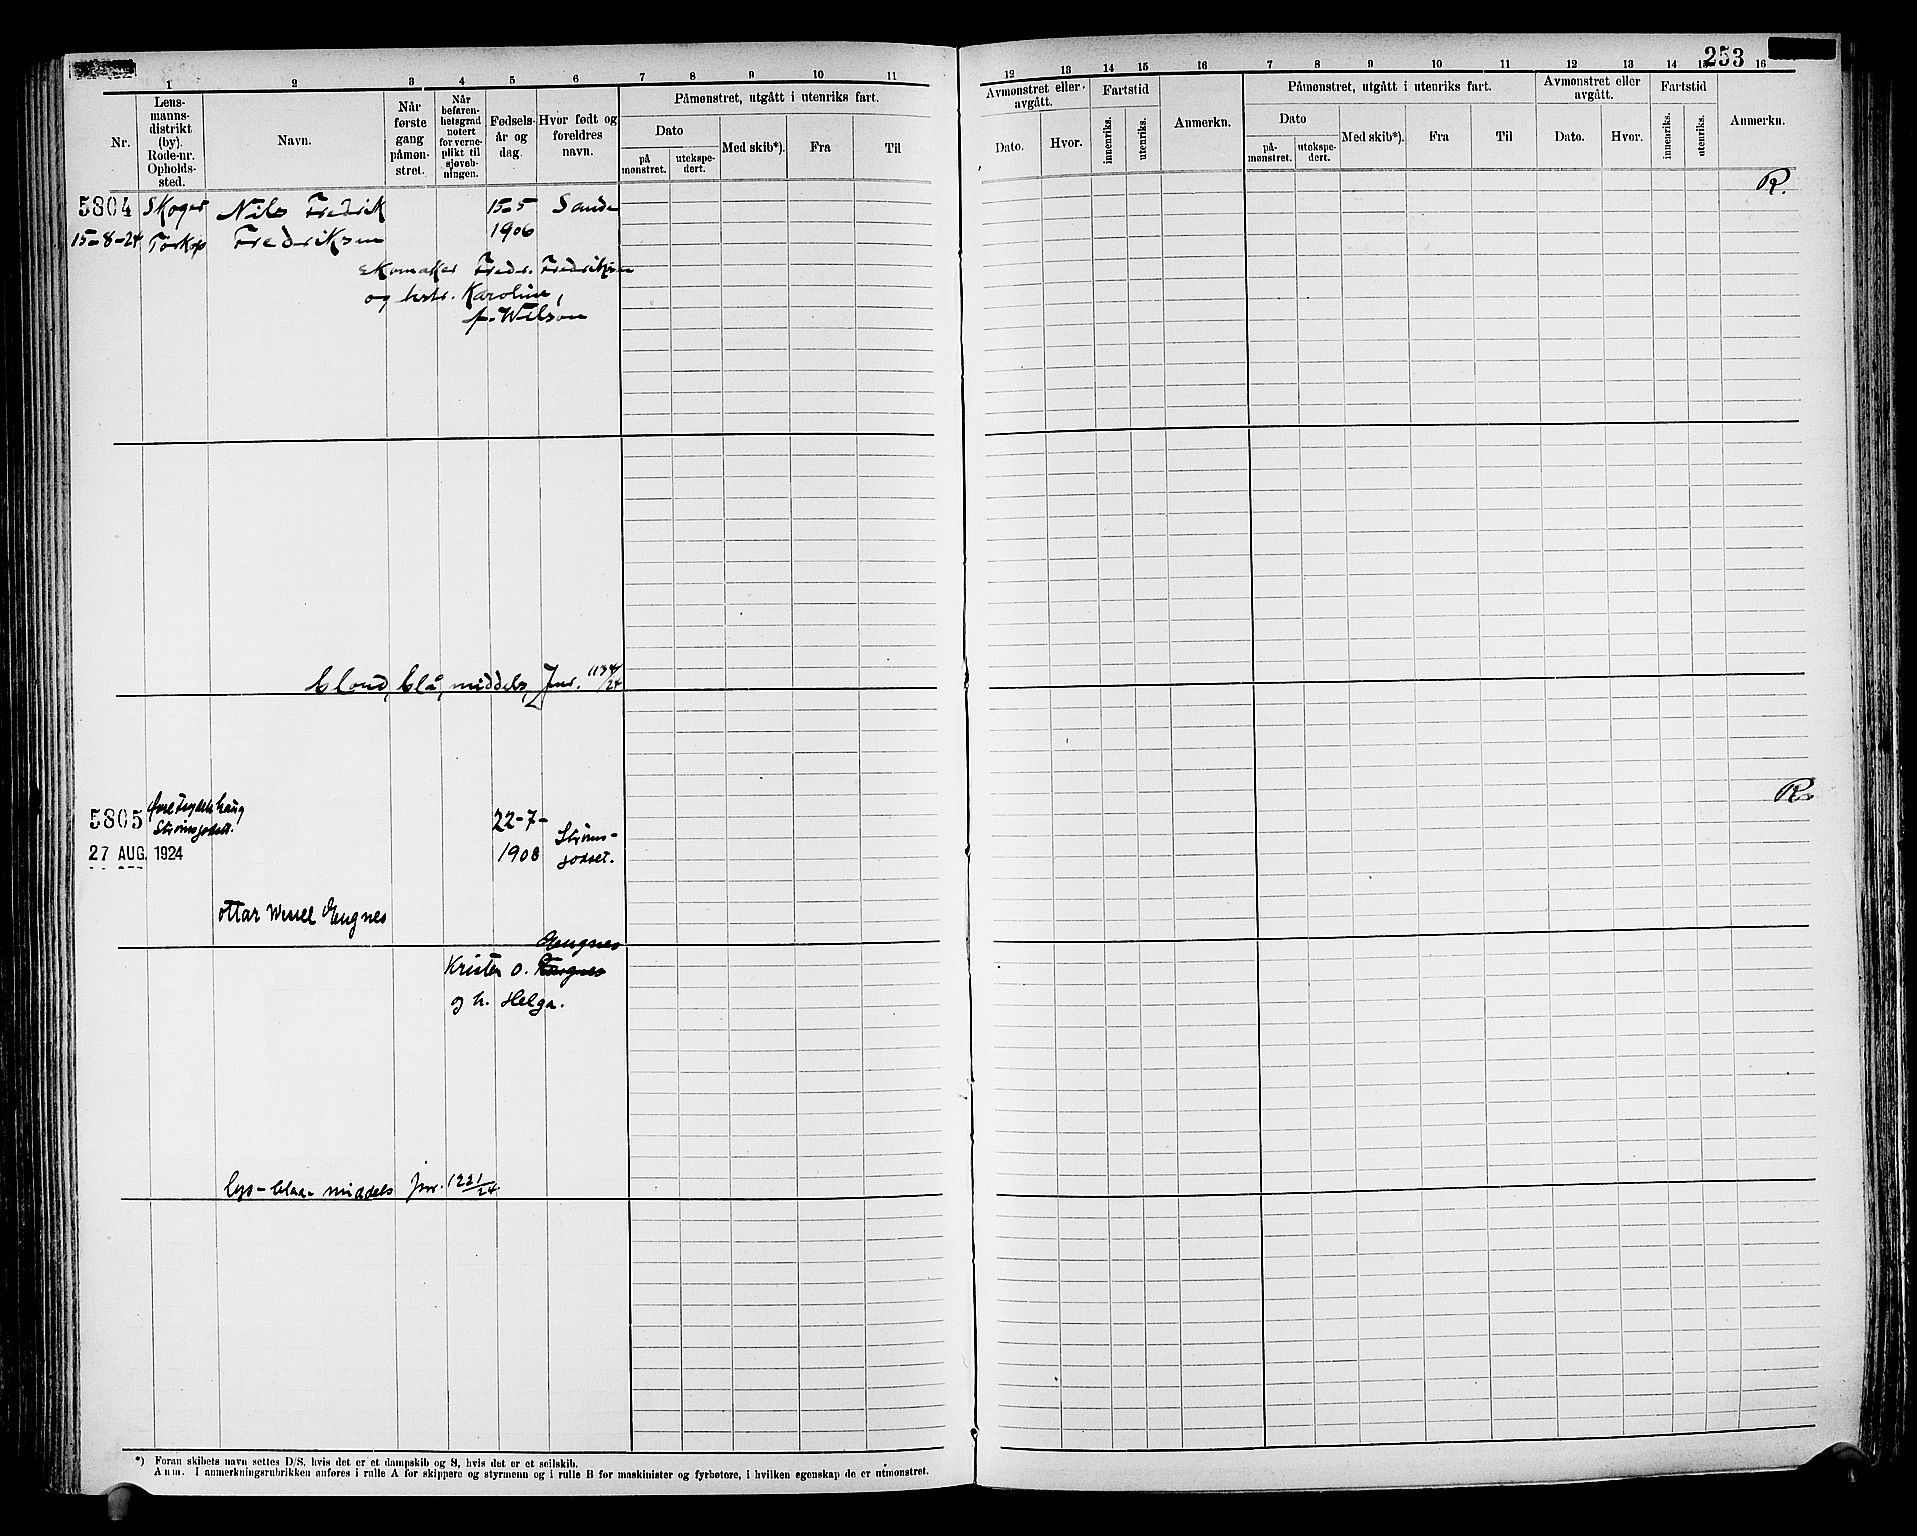 253
1 2 3 4 5 6 7 8 9 10 11
12 13 14 15 16 7 8 9 10 11 12 13 14 15 16
Nr.
Lens-
manns-
distrikt
(by).
Rode-nr.
Opholds-
sted.
Navn.
Når
første
gang
påmøn-
stret.
Når
befaren-
hetsgrad
notert
for verne-
plikt til
sjøveb-
ningen.
Fødsels-
år og
dag.
Hvor født og
foreldres
navn.
Påmønstret, utgått i utenriks fart.
Dato
på
mønstret.
utekspe-
dert.
Med skib*).
Fra
Til
Avmønstret eller
avgått.
Dato.
Hvor.
Fartstid
innenriks.
utenriks.
Anmerkn.
Påmønstret, utgått i utenriks fart.
Dato
på-
mønstret.
utekspe-
dert.
Med skib*).
Fra
Til
Avmønstret eller
avgått.
Dato.
Hvor.
Fartstid
innenriks.
utenriks.
Anmerkn.
R.
5804 Skoger Nils Fredrik 15-5 Sande
15-8-24 Torkop Fredriksen 1906
Skomaker Fredr. Fredriksen
og hstr. Karoline,
f. Wilson
blond, blå, middels, Jnr. 1134/24
5805
Strømsgodset.
27 AUG. 1924
22-7-
1908
Strøms-
godset.
R.
Ottar Wessel Engnes
Engnes
Krister O.
og h. Helga.
lys - blaa - middels jnr. 1221/24
*) Foran skibets navn settes D/S, hvis det er et dampskib og S, hvis det er et seilskib.
Anm. I anmerkningsrubrikken anføres i rulle A for skippere og styrmenn og i rulle B for maskinister og fyrbøtere, i hvilken egenskap de er utmønstret.